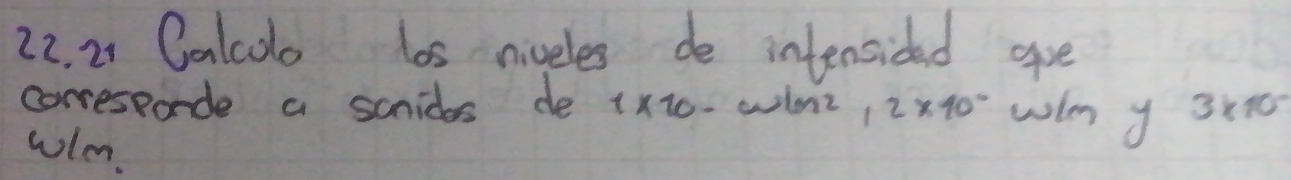 22.21 Calculo los niveles de intensidad que
corresponde a sonidos de 1x10- w/m2, 2x10- w/m y 3x10-
w/m.